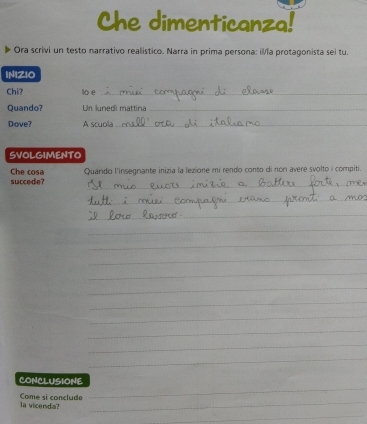 Che dimenticanza!
Ora scrivi un testo narrativo realistico. Narra in prima persona: il/la protagonista sei tu.
INIZIO
Chi? Io e i miei compagni di classe
Quando? Un lunedì mattina
Dove? A scuola nell'ora di italiano
SVOLGIMENTO
Che cosa succede? Quando l'insegnante inizia la lezione mi rendo conto di non avere svolto i compiti.
Il mio cuore inizia a battere forte, men
tutti i miei compagni erano pronti a mos
il loro lavoro.
CONCLUSIONE
Come si conclude
la vicenda?